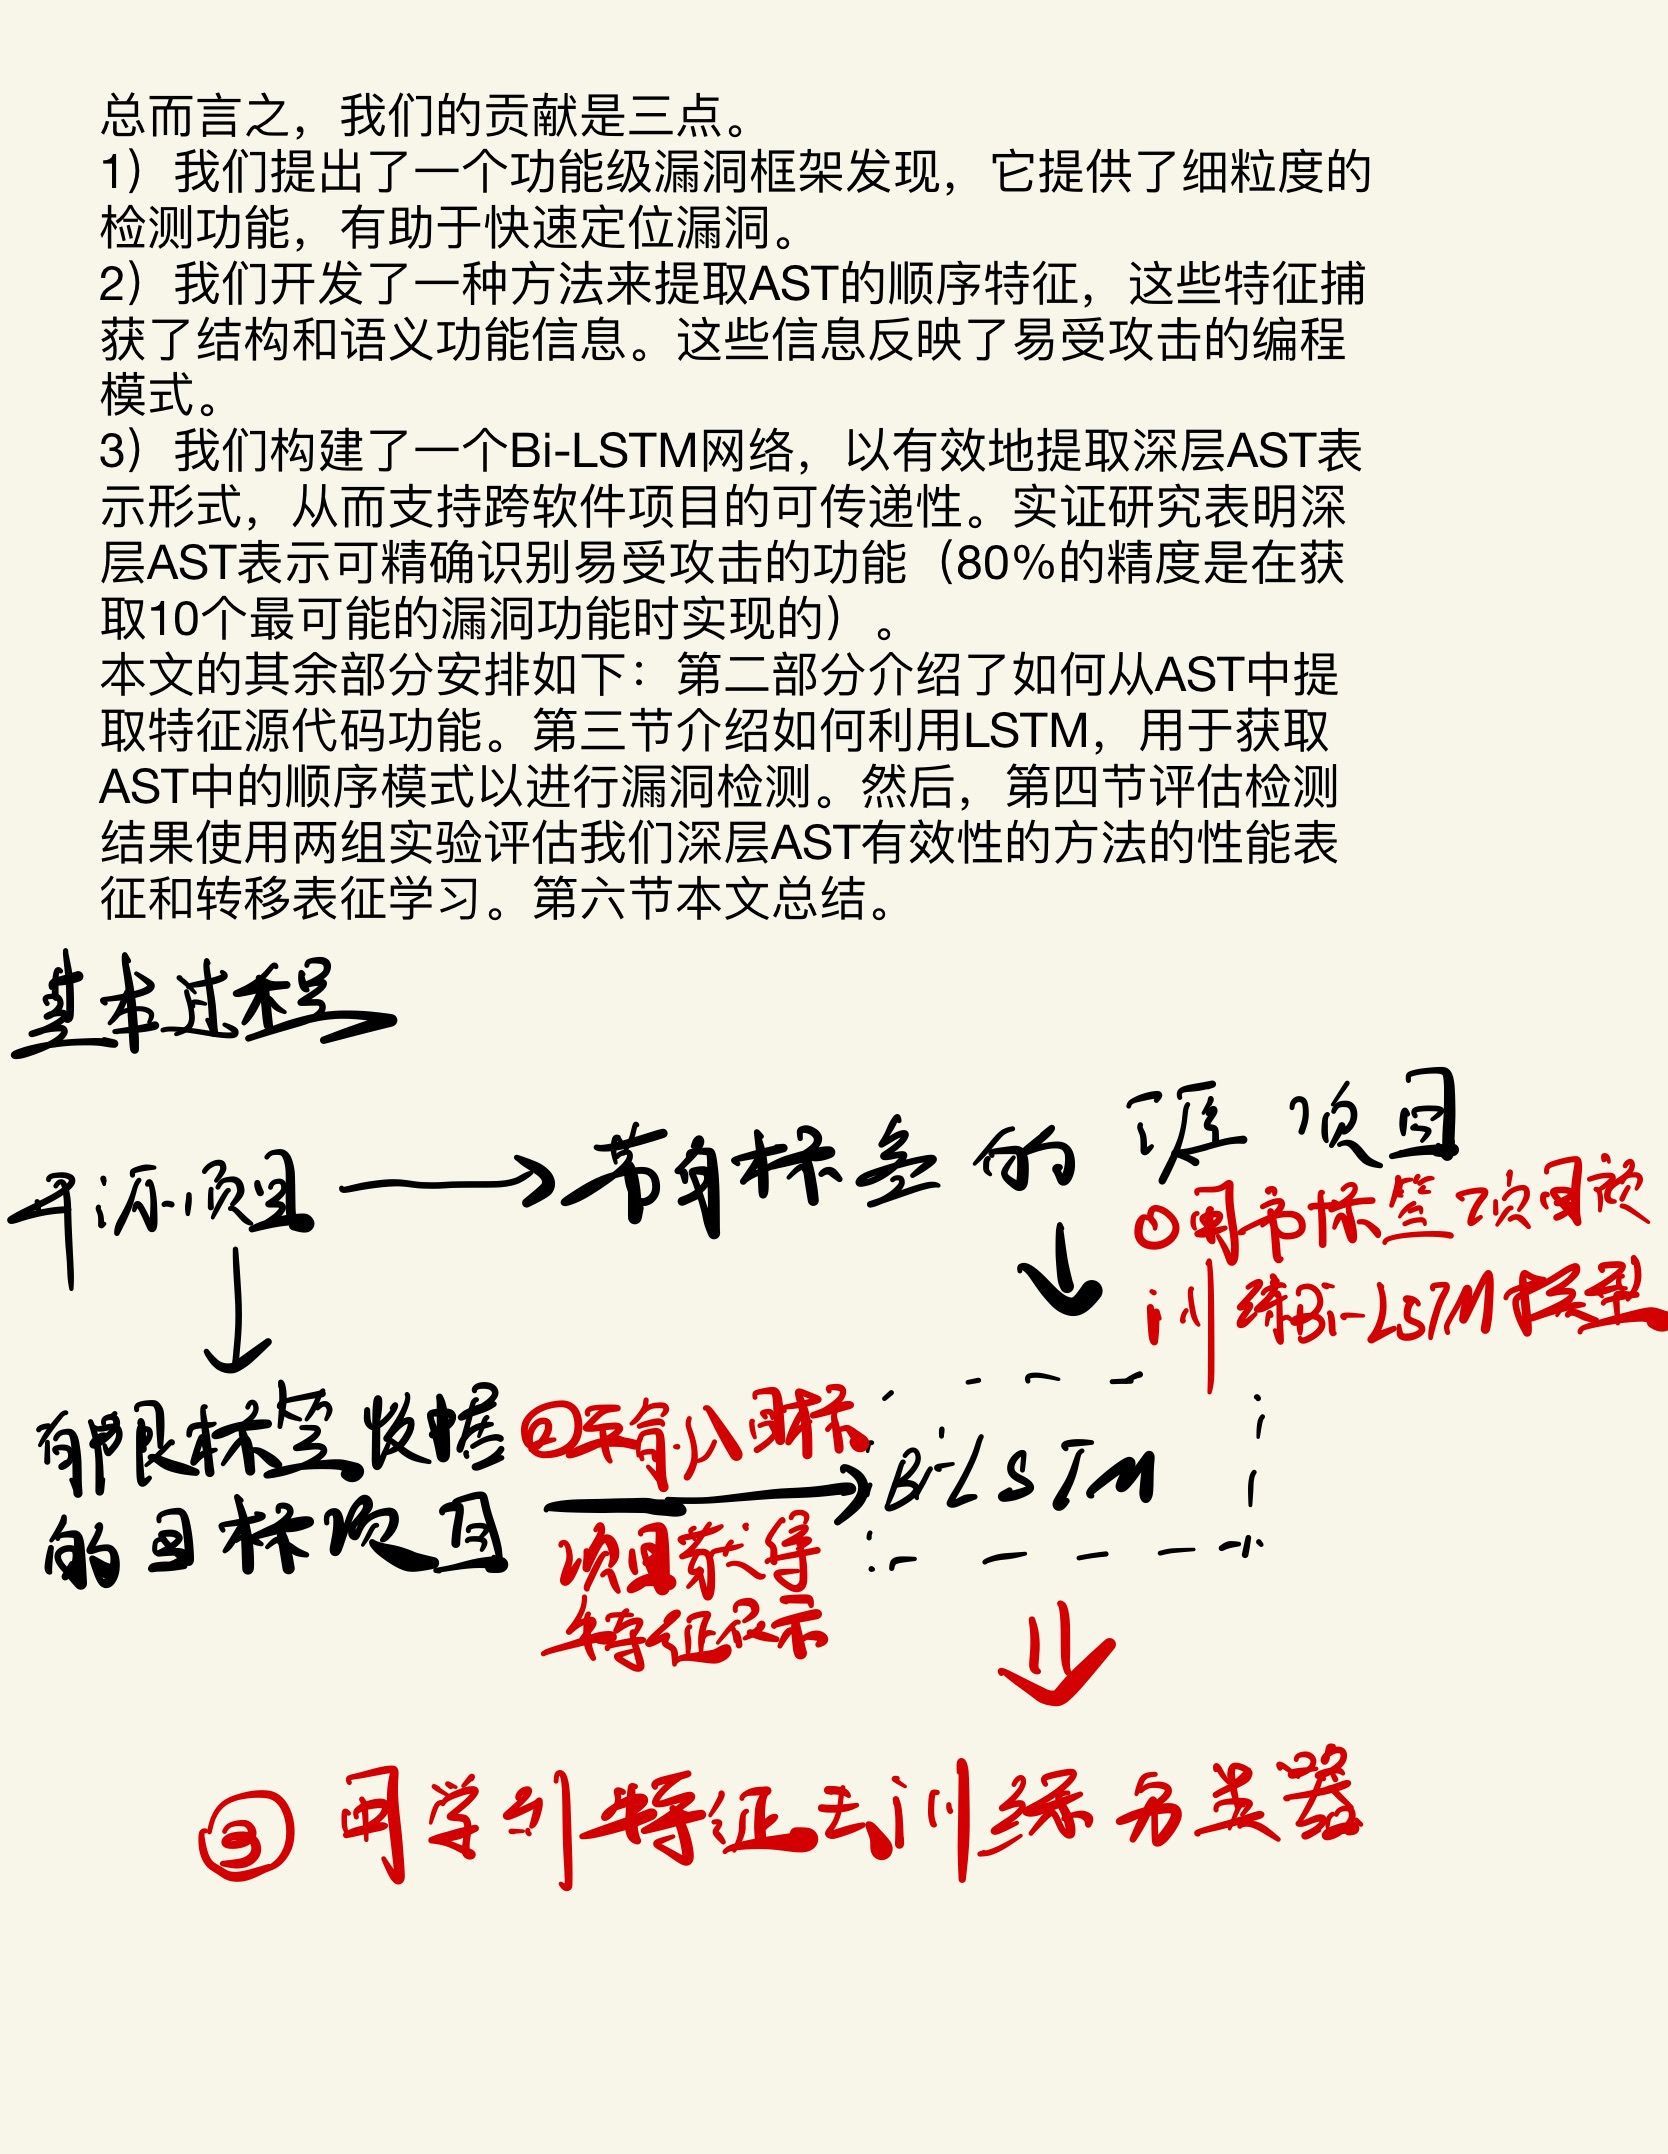 总而言之，我们的贡献是三点。
1）我们提出了一个功能级漏洞框架发现，它提供了细粒度的
检测功能，有助于快速定位漏洞。
2）我们开发了一种方法来提取AST的顺序特征，这些特征捕
获了结构和语义功能信息。这些信息反映了易受攻击的编程
模式。
3）我们构建了一个Bi-LSTM网络，以有效地提取深层AST表
示形式，从而支持跨软件项目的可传递性。实证研究表明深
层AST表示可精确识别易受攻击的功能（80％的精度是在获
取10个最可能的漏洞功能时实现的）。
本文的其余部分安排如下：第二部分介绍了如何从AST中提
取特征源代码功能。第三节介绍如何利用LSTM，用于获取
AST中的顺序模式以进行漏洞检测。然后，第四节评估检测
结果使用两组实验评估我们深层AST有效性的方法的性能表
征和转移表征学习。第六节本文总结。
基本过程
开源项目 → 带有标签的 源 项目
①用带标签项目预
训练Bi-LSTM模型
有限标签数据
的目标项目
②输入目标
项目获得
特征表示
Bi-LSTM
③ 用学到特征去训练分类器